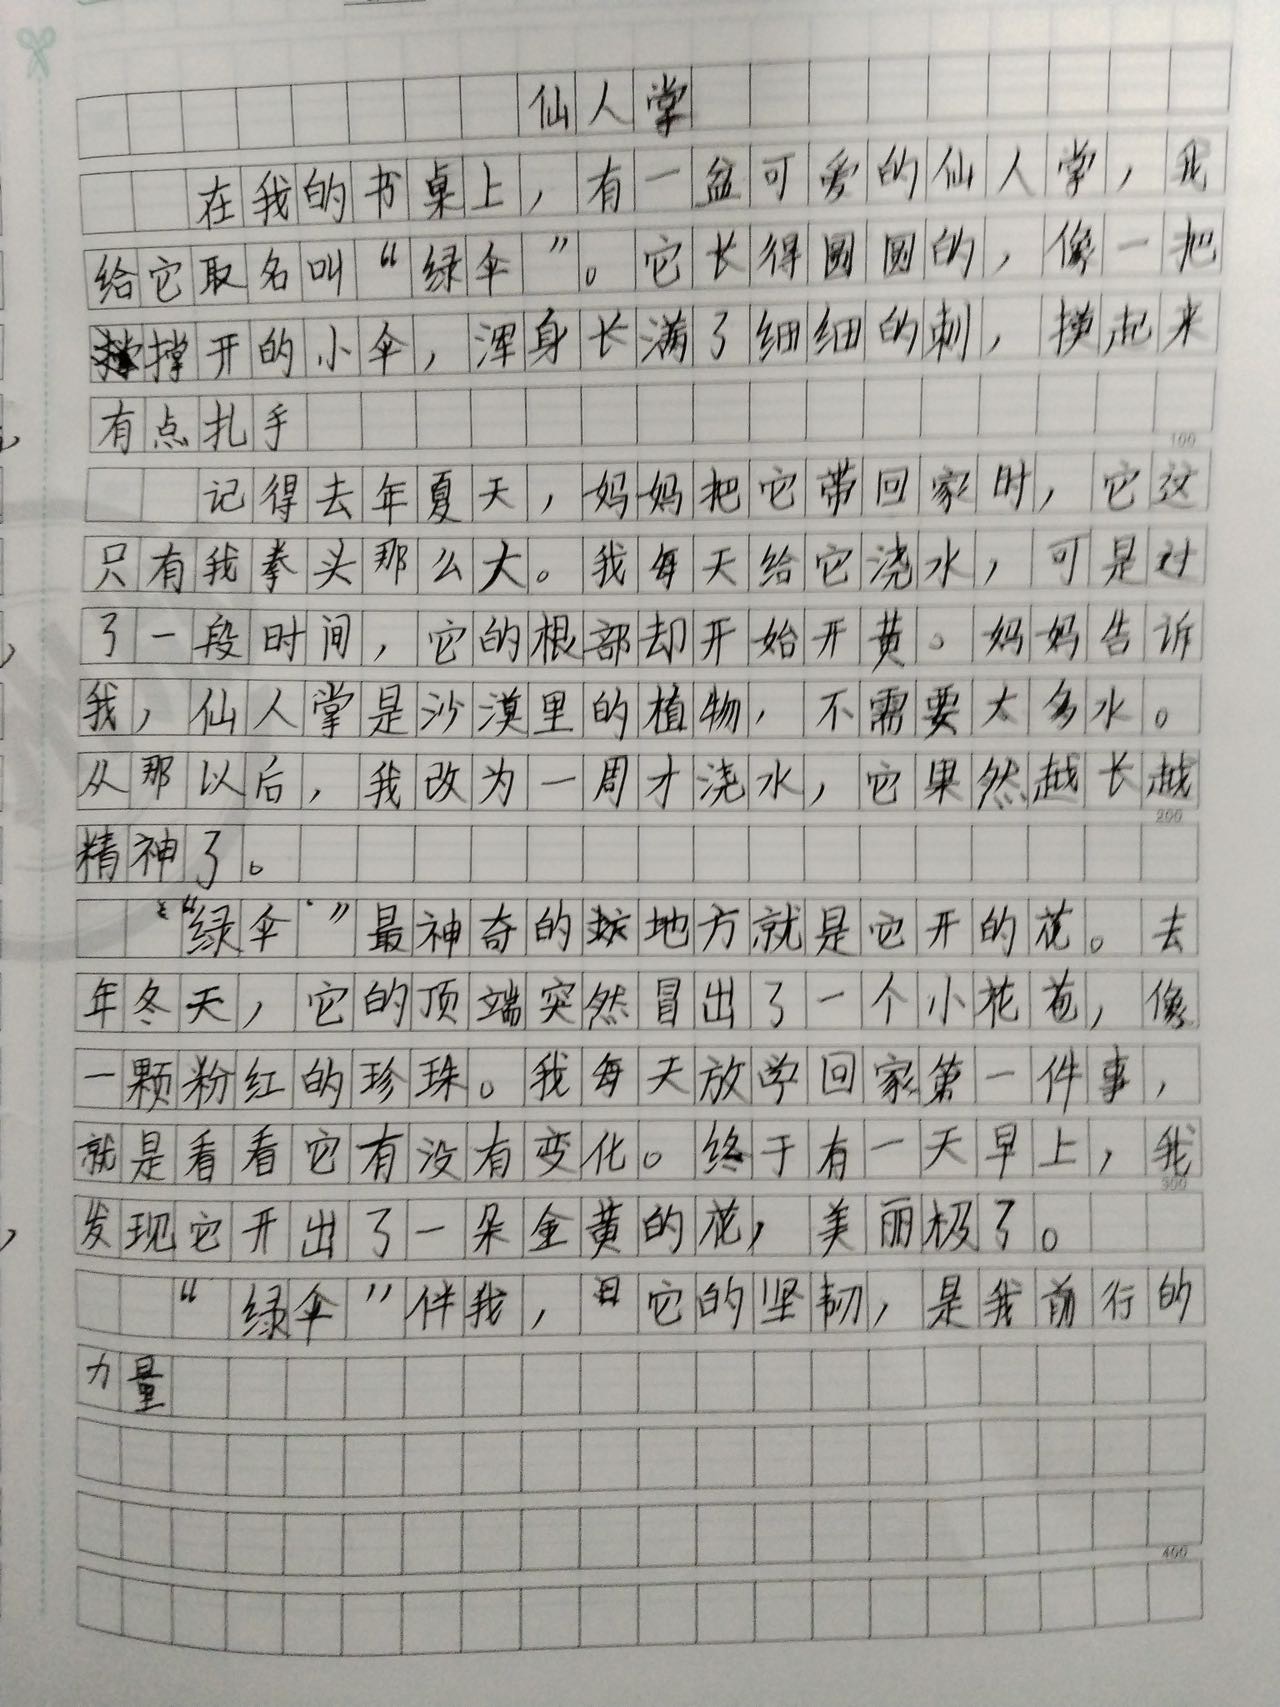 仙人掌
在我的书桌上，有一盆可爱的仙人掌，我
给它取名叫“绿伞”。它长得圆圆的，像一把
撑开的小伞，浑身长满了细细的刺，摸起来
有点扎手
记得去年夏天，妈妈把它带回家时，它这
只有我拳头那么大。我每天给它浇水，可是过
了一段时间，它的根部却开始开黄。妈妈告诉
我，仙人掌是沙漠里的植物，不需要太多水。
从那以后，我改为一周才浇水，它果然越长越
精神了。
“绿伞”最神奇的地方就是它开的花。去
年冬天，它的顶端突然冒出了一个小花苞，像
一颗粉红的珍珠。我每天放学回家第一件事，
就是看看它有没有变化。终于有一天早上，我
发现它开出了一朵金黄的花，美丽极了。
“绿伞”伴我，它的坚韧，是我前行的
力量
100
200
300
400